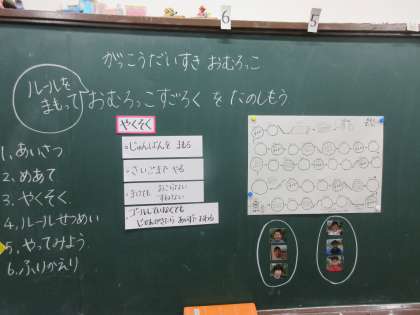 6
5
がっこうだいすき おむろっこ
ルールを
まもって
おむろっこすごろく を たのしもう
やくそく
じゅんばんを まもる
さいごまで やる
まけても おこらない
すねない
ゴールしていなくても
じかんがきたら おわる
1、あいさつ
2、めあて
3、やくそく
4、ルールせつめい
5、やってみよう
6、ふりかえり